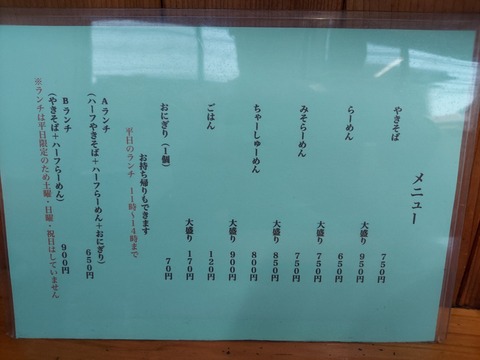 メニュー
やきそば 750円
大盛り 950円
らーめん 650円
大盛り 750円
みそらーめん 750円
大盛り 850円
ちゃーしゅーめん 800円
大盛り 900円
ごはん 120円
大盛り 170円
おにぎり(1個) 70円
お持ち帰りもできます
平日のランチ 11時~14時まで
Aランチ
(ハーフやきそば+ハーフらーめん+おにぎり) 650円
Bランチ
(やきそば+ハーフらーめん) 900円
※ランチは平日限定のため土曜・日曜・祝日はしていません